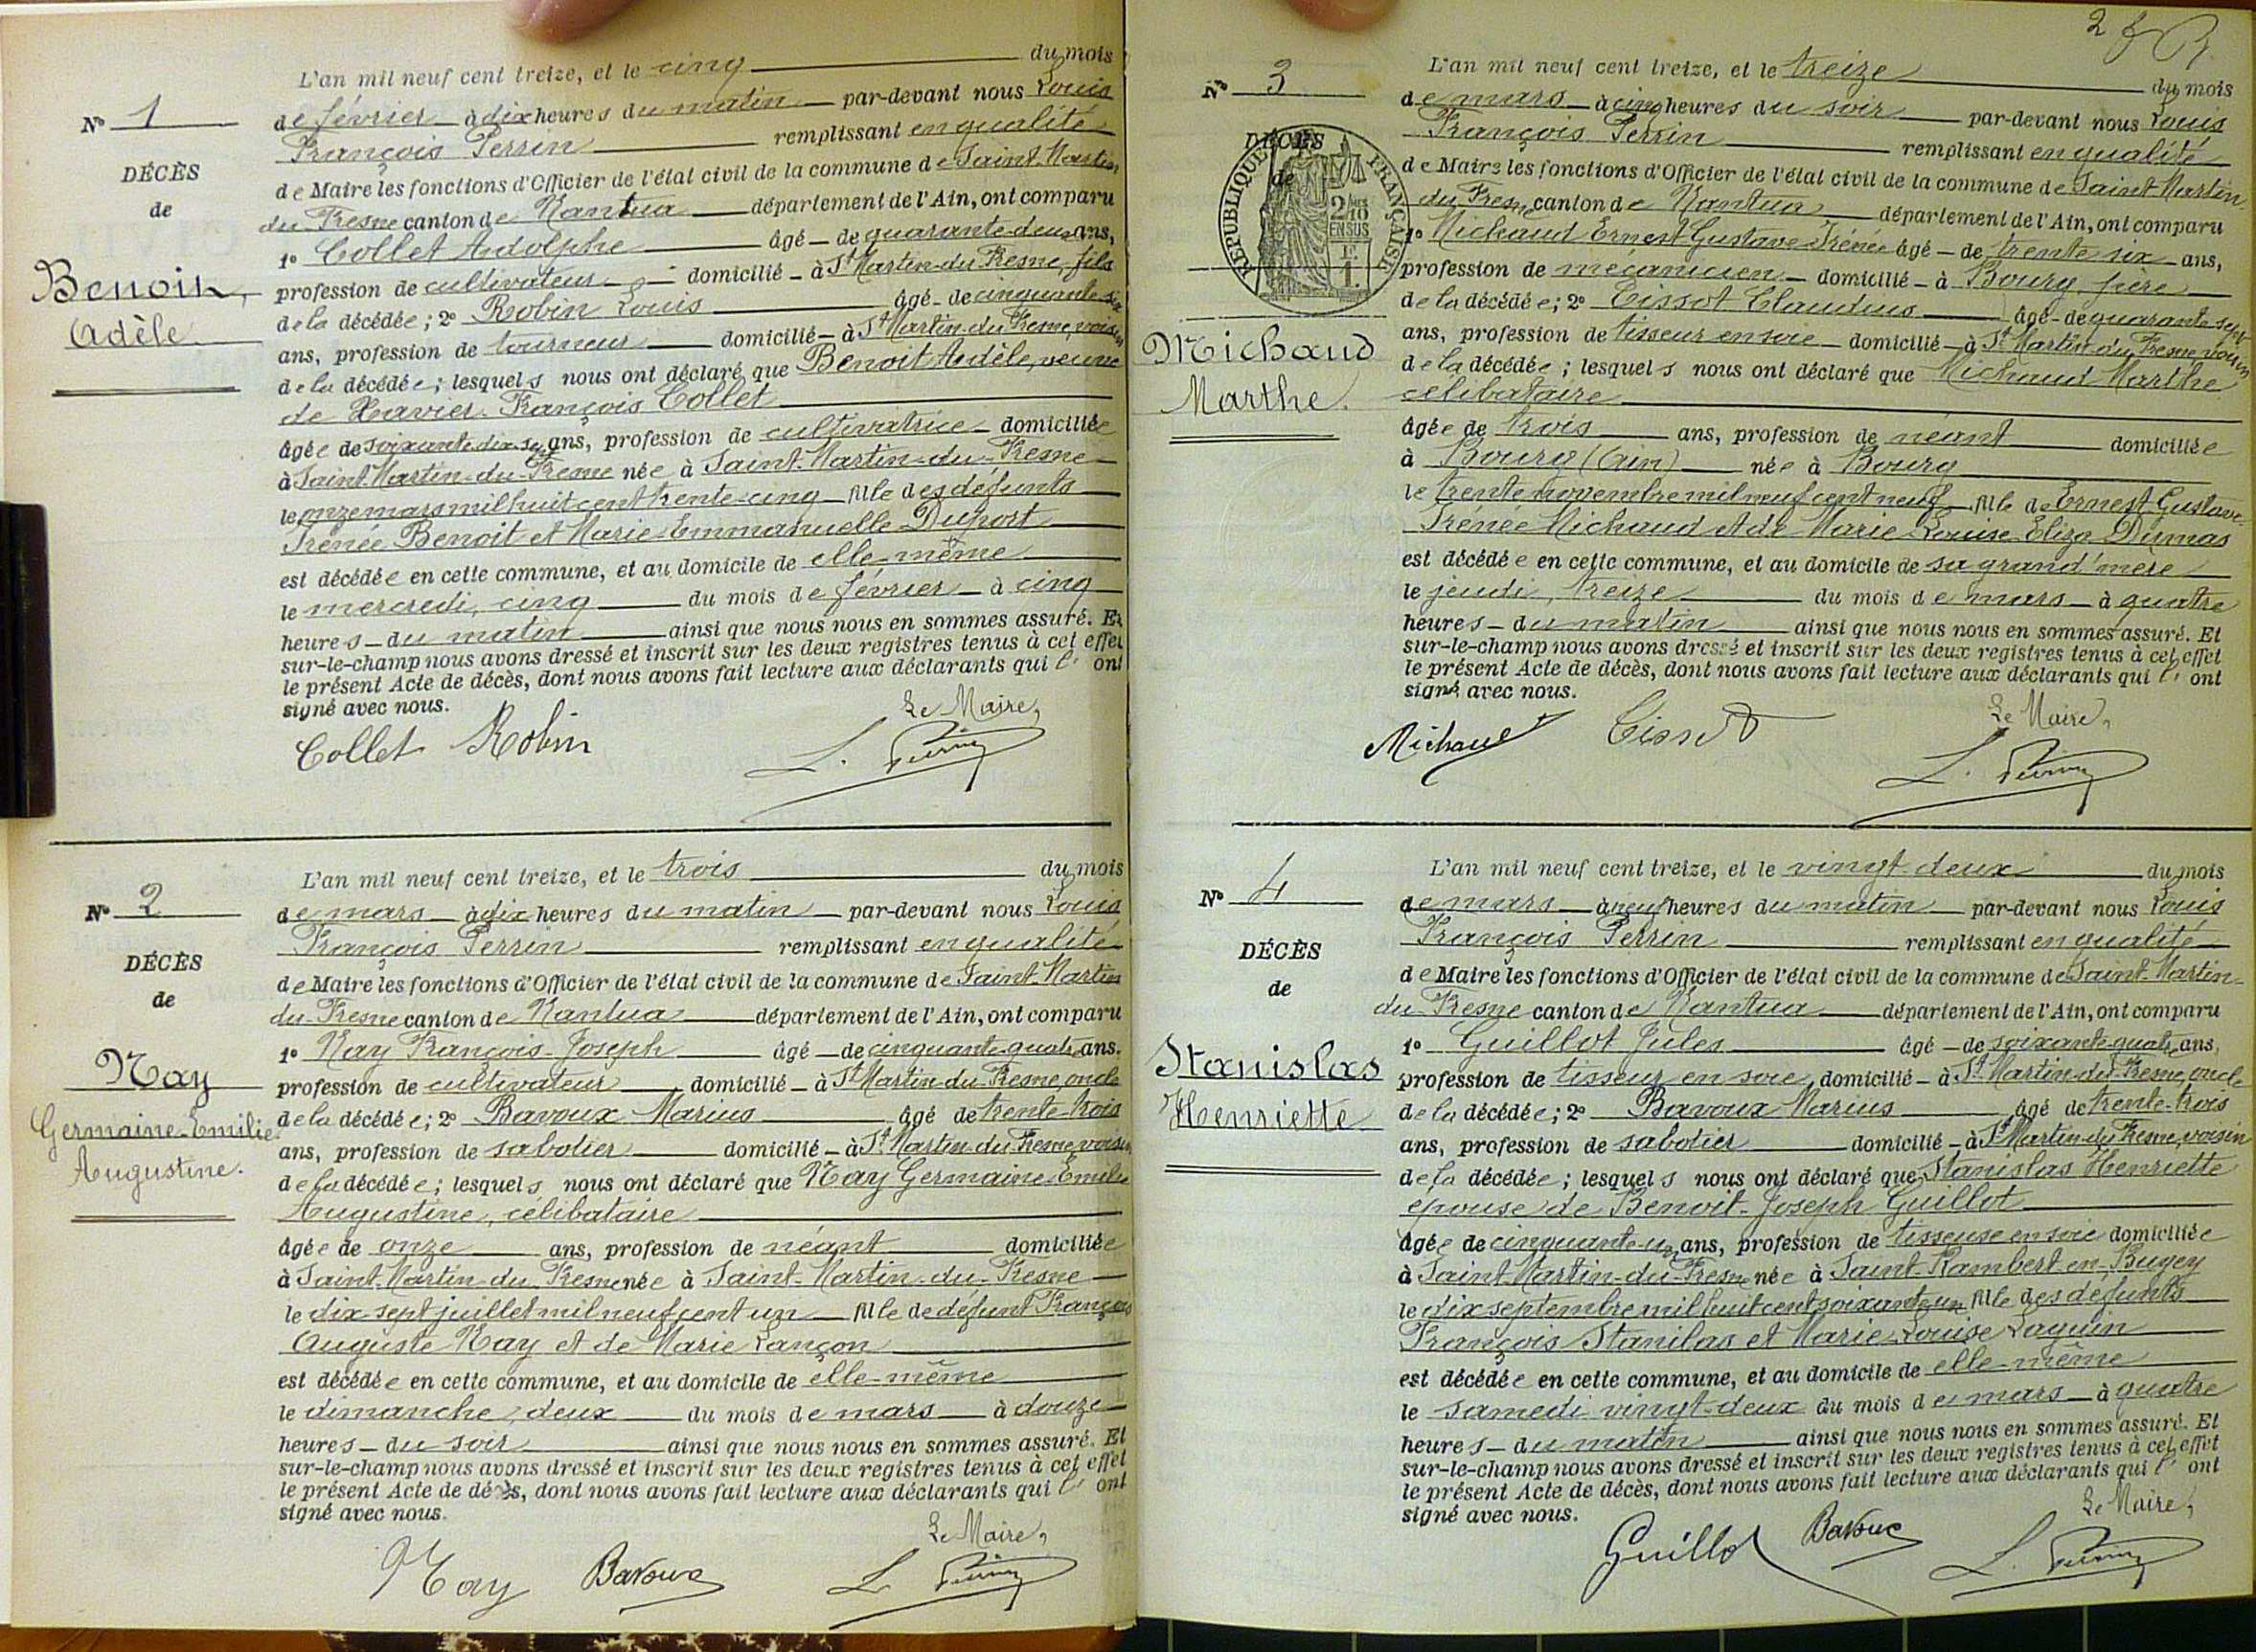 L'an mil neuf cent treize, et le cinq du mois
N° 1
de février à dix heures du matin par-devant nous Louis
François Perrin remplissant en qualité
DÉCÈS
de Maire les fonctions d'Officier de l'état civil de la commune de Saint-Martin
de
du-Fresne canton de Nantua département de l'Ain, ont comparu
1° Collet Adolphe âgé de quarante-deux ans,
Benoit,
profession de cultivateur domicilié à St Martin-du-Fresne, fils
de la décédée; 2° Robin Louis âgé de cinquante-six
Adèle
ans, profession de tourneur domicilié à St Martin-du-Fresne, voisin
de la décédée; lesquels nous ont déclaré que Benoit Adèle, veuve
de Xavier-François Collet
âgée de soixante-dix-sept ans, profession de cultivatrice domiciliée
à Saint-Martin-du-Fresne née à Saint-Martin-du-Fresne
le onze mars mil huit cent trente-cinq fille des défunts
Irénée Benoit et Marie-Emmanuelle Duport
est décédée en cette commune, et au domicile de elle-même
le mercredi, cinq du mois de février à cinq
heures du matin ainsi que nous nous en sommes assuré. Et
sur-le-champ nous avons dressé et inscrit sur les deux registres tenus à cet effet
le présent Acte de décès, dont nous avons fait lecture aux déclarants qui l' ont
signé avec nous.
Le Maire,
Collet Robin L. Perrin
L'an mil neuf cent treize, et le trois du mois
N° 2
de mars à dix heures du matin par-devant nous Louis
François Perrin remplissant en qualité
DÉCÈS
de Maire les fonctions d'Officier de l'état civil de la commune de Saint-Martin
de
du-Fresne canton de Nantua département de l'Ain, ont comparu
1° Nay François-Joseph âgé de cinquante-quatre ans,
Nay
profession de cultivateur domicilié à St Martin-du-Fresne, oncle
de la décédée; 2° Bavoux Marius âgé de trente-trois
Germaine-Emilie
ans, profession de sabotier domicilié à St Martin-du-Fresne, voisin
Augustine.
de la décédée; lesquels nous ont déclaré que Nay Germaine-Emilie
Augustine, célibataire
âgée de onze ans, profession de néant domiciliée
à Saint-Martin-du-Fresne née à Saint-Martin-du-Fresne
le dix-sept juillet mil neuf cent un fille de défunt François
Auguste Nay et de Marie Lançon
est décédée en cette commune, et au domicile de elle-même
le dimanche, deux du mois de mars à douze
heures du soir ainsi que nous nous en sommes assuré. Et
sur-le-champ nous avons dressé et inscrit sur les deux registres tenus à cet effet
le présent Acte de décès, dont nous avons fait lecture aux déclarants qui l' ont
signé avec nous.
Le Maire,
Nay Bavoux L. Perrin
2
L'an mil neuf cent treize, et le treize du mois
N° 3
de mars à cinq heures du soir par-devant nous Louis
François Perrin remplissant en qualité
DÉCÈS
de
RÉPUBLIQUE FRANÇAISE
2/10 EN SUS
1 F.
de Maire les fonctions d'Officier de l'état civil de la commune de Saint-Martin
du-Fresne canton de Nantua département de l'Ain, ont comparu
1° Michaud Ernest Gustave Irénée âgé de trente-six ans,
profession de mécanicien domicilié à Bourg, père
de la décédée; 2° Tissot Claudius âgé de quarante-sept
Michaud
ans, profession de tisseur en soie domicilié à St Martin-du-Fresne, voisin
Marthe.
de la décédée; lesquels nous ont déclaré que Michaud Marthe
célibataire
âgée de trois ans, profession de néant domiciliée
à Bourg (Ain) née à Bourg
le trente novembre mil neuf cent neuf fille de Ernest-Gustave-
Irénée Michaud et de Marie-Louise-Eliza Dumas
est décédée en cette commune, et au domicile de sa grand'mère
le jeudi, treize du mois de mars à quatre
heures du matin ainsi que nous nous en sommes assuré. Et
sur-le-champ nous avons dressé et inscrit sur les deux registres tenus à cet effet
le présent Acte de décès, dont nous avons fait lecture aux déclarants qui l' ont
signé avec nous.
Le Maire,
Michaud Tissot L. Perrin
L'an mil neuf cent treize, et le vingt-deux du mois
N° 4
de mars à neuf heures du matin par-devant nous Louis
François Perrin remplissant en qualité
DÉCÈS
de Maire les fonctions d'Officier de l'état civil de la commune de Saint-Martin-
de
du-Fresne canton de Nantua département de l'Ain, ont comparu
1° Guillot Jules âgé de soixante-quatre ans,
Stanislas
profession de tisseur en soie domicilié à St Martin-du-Fresne, oncle
Henriette
de la décédée; 2° Bavoux Marius âgé de trente-trois
ans, profession de sabotier domicilié à St Martin-du-Fresne, voisin
de la décédée; lesquels nous ont déclaré que Stanislas Henriette
épouse de Benoit-Joseph Guillot
âgée de cinquante-un ans, profession de tisseuse en soie domiciliée
à Saint-Martin-du-Fresne née à Saint-Rambert-en-Bugey
le dix septembre mil huit cent soixante-un fille des défunts
François Stanilas et Marie-Louise Laguin
est décédée en cette commune, et au domicile de elle-même
le samedi vingt-deux du mois de mars à quatre
heures du matin ainsi que nous nous en sommes assuré. Et
sur-le-champ nous avons dressé et inscrit sur les deux registres tenus à cet effet
le présent Acte de décès, dont nous avons fait lecture aux déclarants qui l' ont
signé avec nous.
Le Maire,
Guillot Bavoux L. Perrin